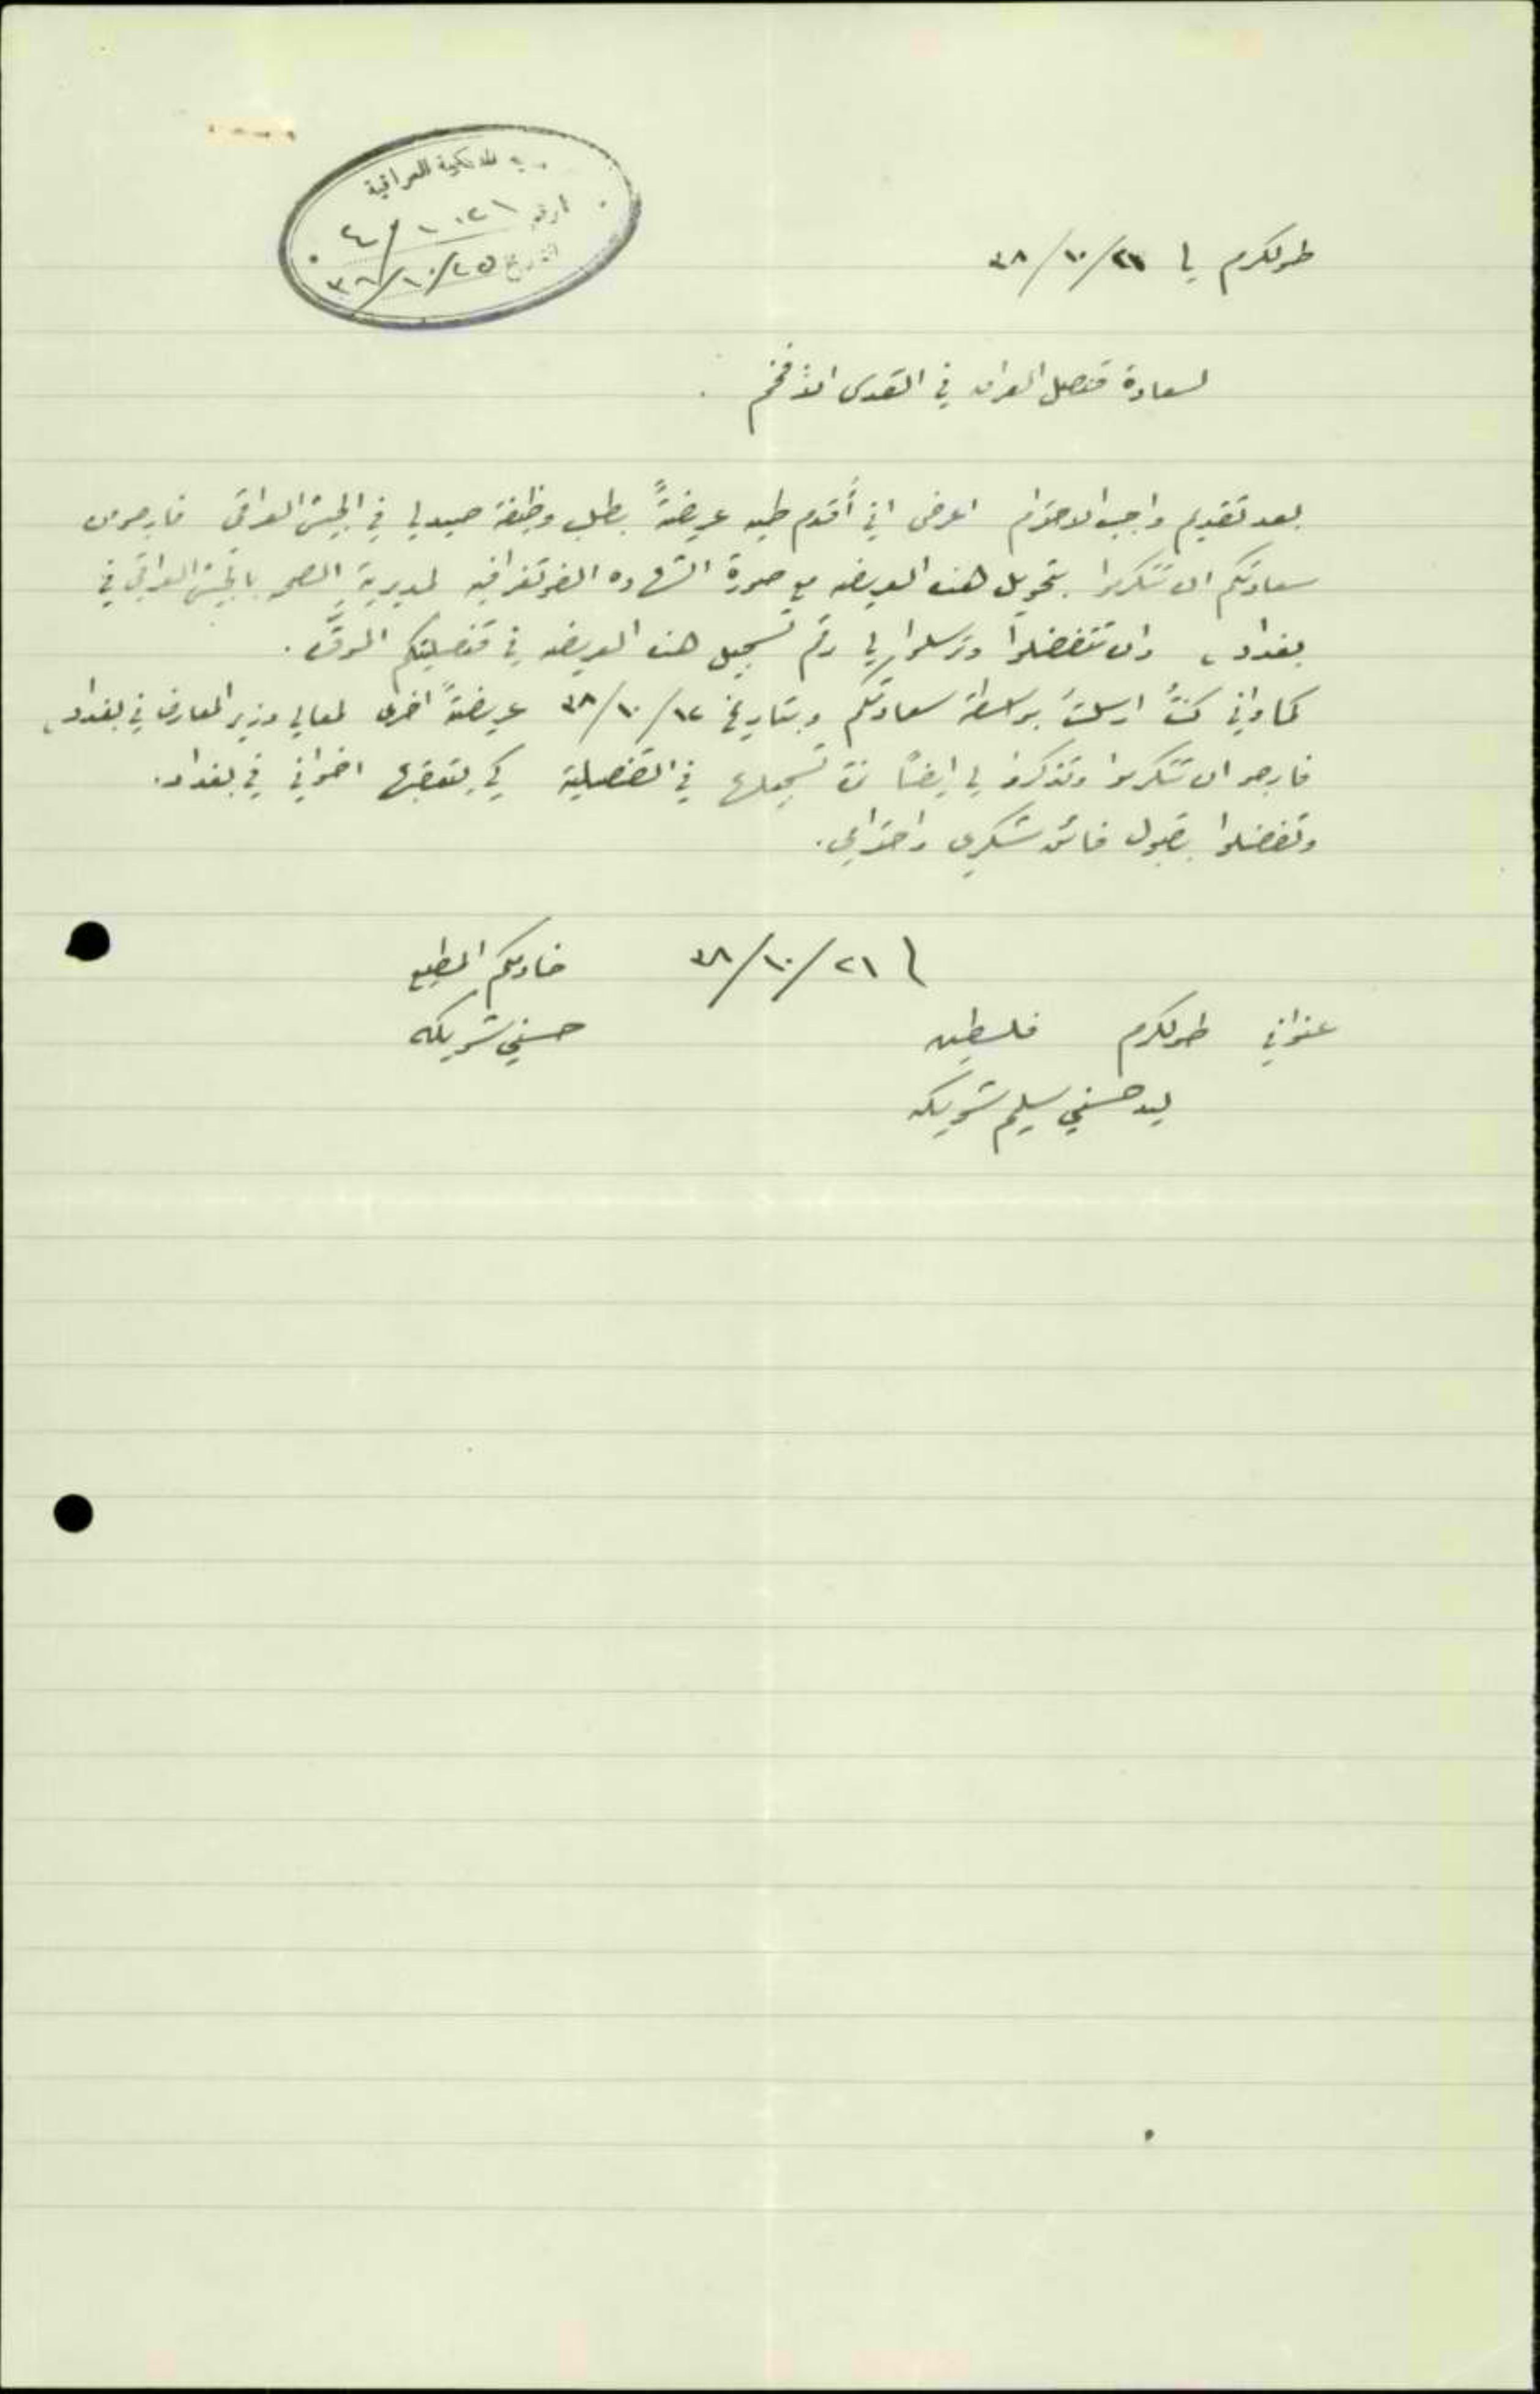 العراقية
الرقم ١٠٢١ / ٤
التاريخ ٢٥/١٠/٣٨
طولكرم في ٢١/١٠/٣٨
لسعادة قنصل العراق في القدس الأفخم .
بعد تقديم واجب الاحترام اعرض اني أقدم طيه عريضةً بطلب وظيفة صيدلي في الجيش العراقي فارجو من
سعادتكم ان تتكرموا بتحويل هذه العريضه مع صورة الشهاده الفوتغرافيه لمديرية الصحه بالجيش العراقي في
بغداد، وان تتفضلوا وترسلوا لي رقم تسجيل هذه العريضه في قنصليتكم الموقره .
كما واني كنتُ ارسلت بواسطة سعادتكم وبتاريخ ١٢/١٠/٣٨ عريضةً اخرى لمعالي وزير المعارف في بغداد،
فارجو ان تتكرموا وتذكروا لي ايضاً نمرة تسجيلها في القنصلية كي يتعقبها اخواني في بغداد.
وتفضلوا بقبول فائق شكري واحترامي.
٢١/١٠/٣٨
خادمكم المطيع
حسني شريكه
عنواني طولكرم فلسطين
ليد حسني سليم شريكه